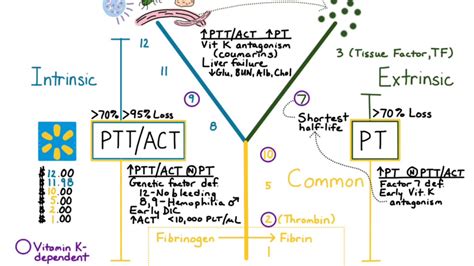 ↑PTT/ACT ↑PT
Vit K antagonism
(coumarins)
Liver failure
↓Glu, BUN, Alb, Chol
12
11
9
8
7
3 (Tissue Factor, TF)
Intrinsic
Extrinsic
Shortest
half-life
>70% >95% Loss
PTT/ACT
>70% Loss
PT
$12.00
$11.98
$10.00
$5.00
$2.00
$1.00
↑PTT/ACT Ⓝ PT
Genetic factor def.
12-No bleeding
8,9-Hemophilia ♂
Early DIC
↑ACT <10,000 PLT/mL
10
5
Common
2 (Thrombin)
↑PT Ⓝ PTT/ACT
Factor 7 def.
Early Vit K
antagonism
Fibrinogen → Fibrin
1
Vitamin K-
dependent